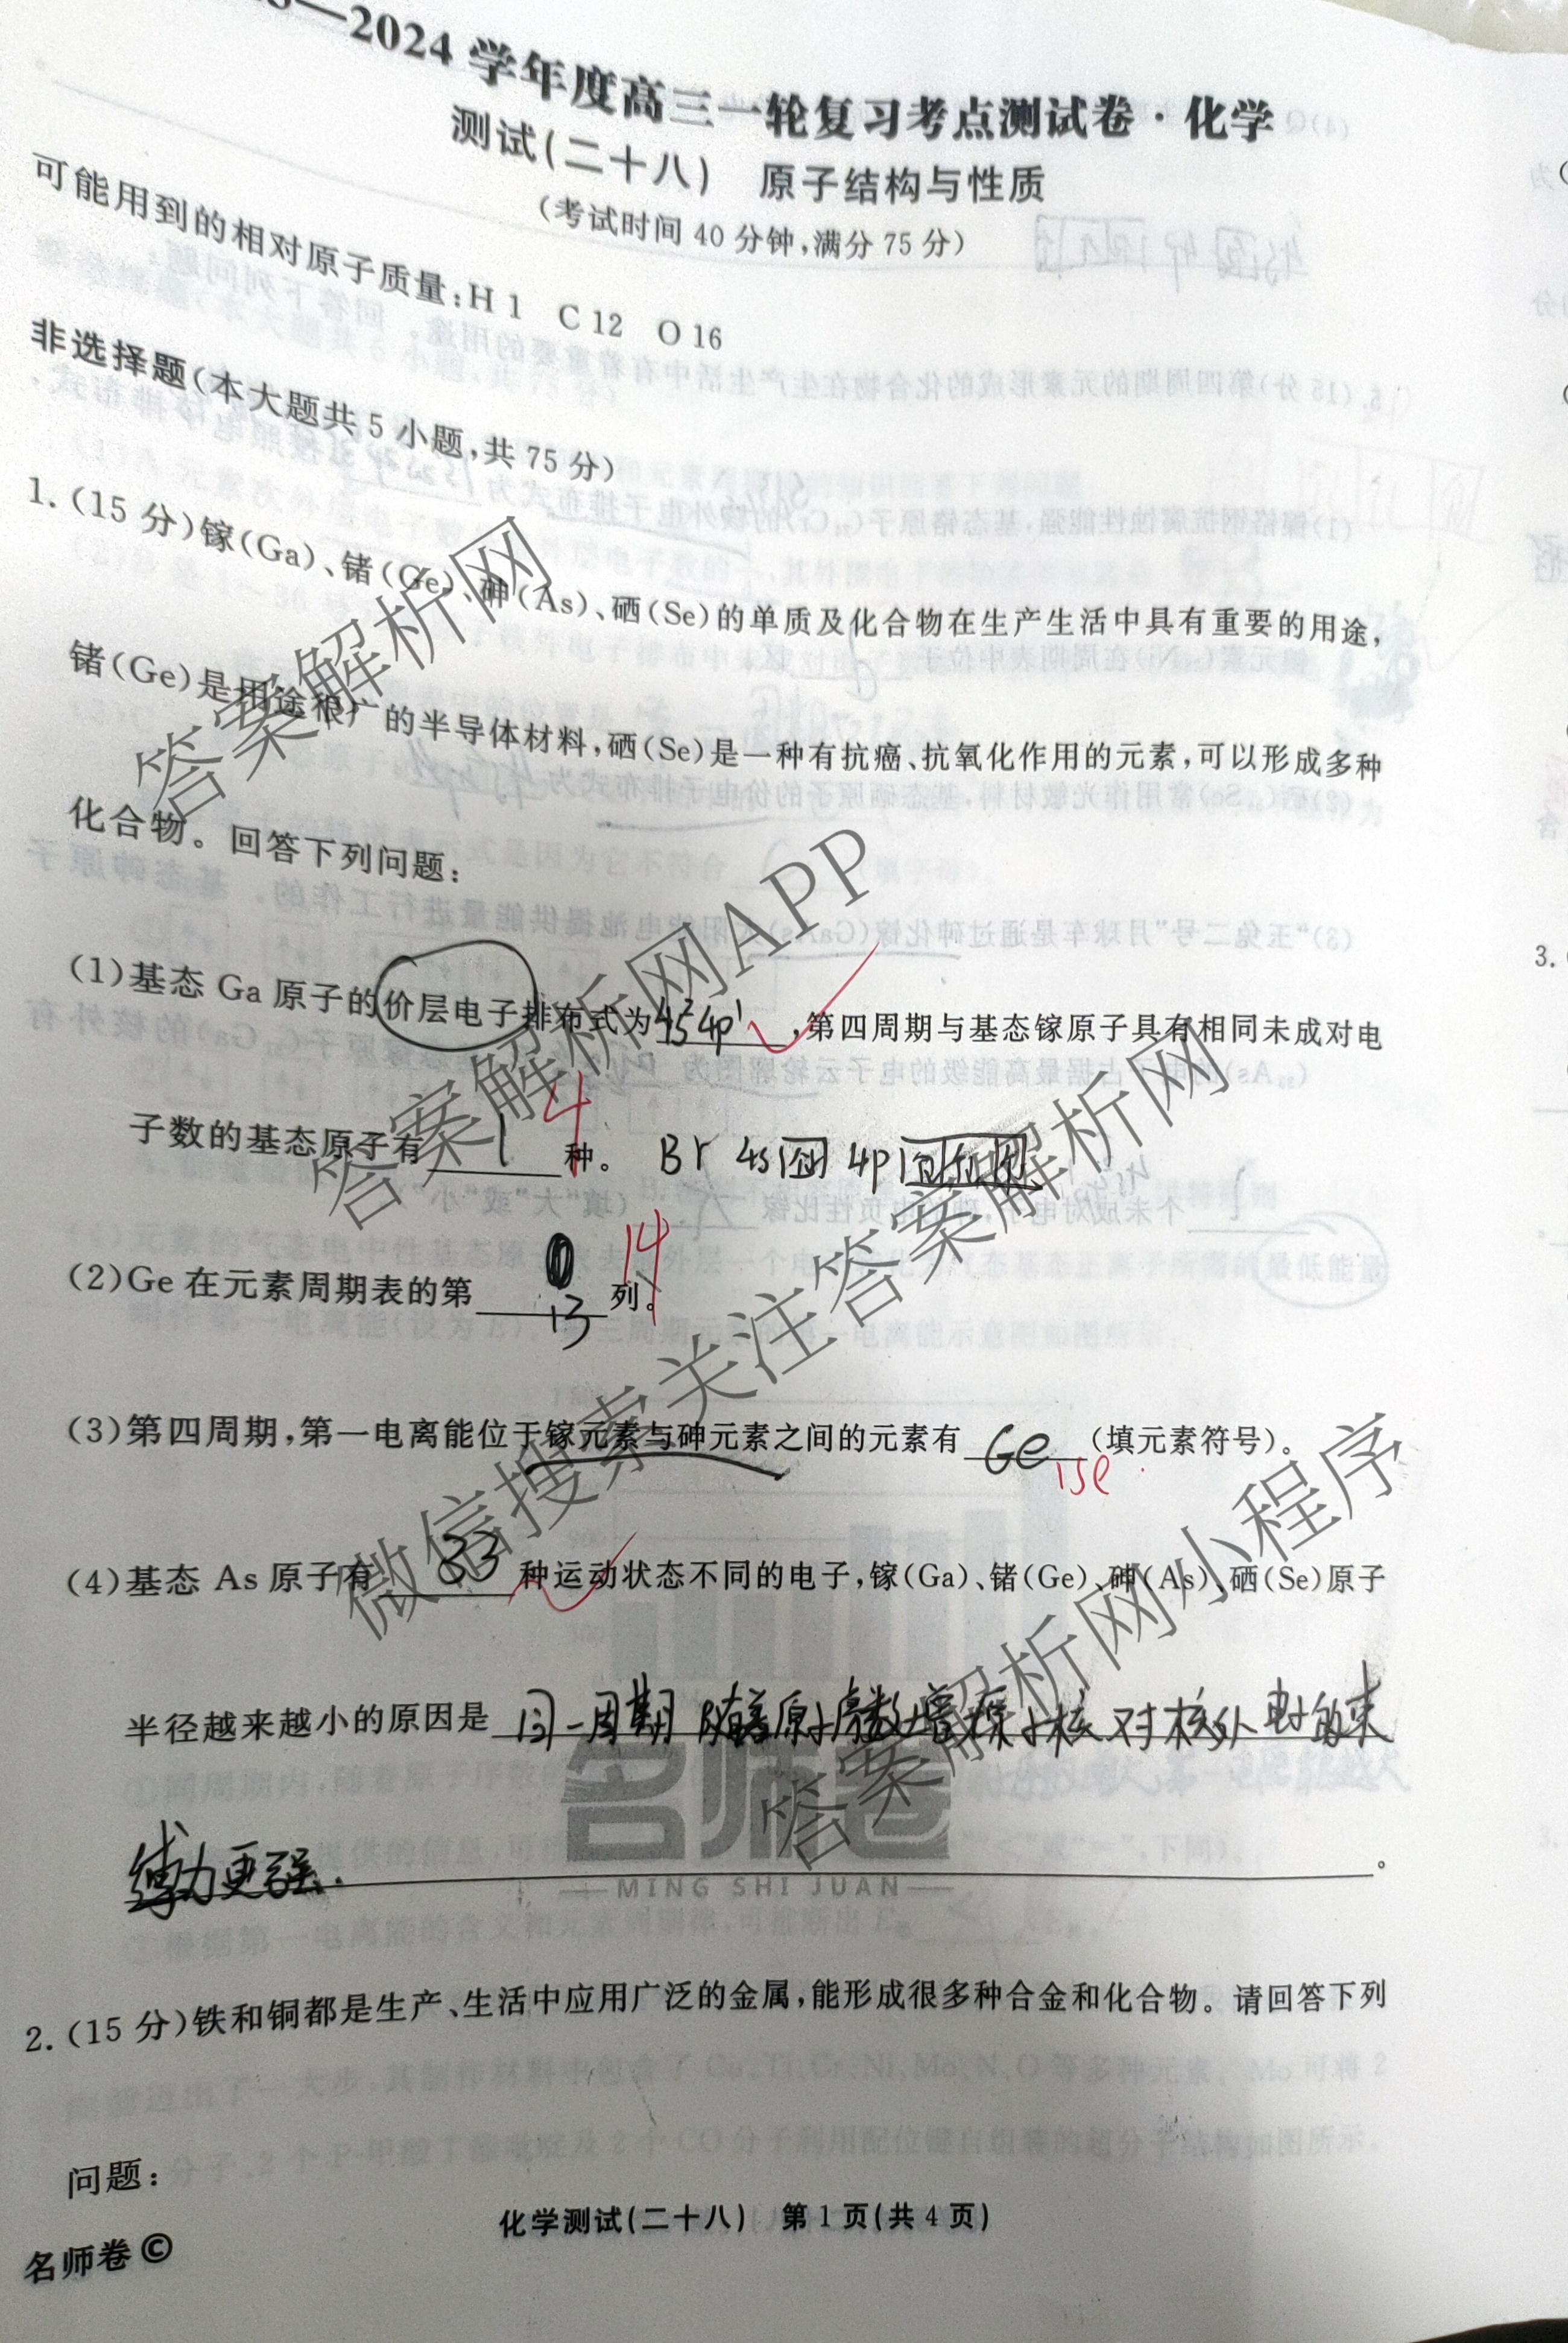 —2024 学年度高三一轮复习考点测试卷·化学
测试(二十八) 原子结构与性质
(考试时间 40 分钟,满分 75 分)
可能用到的相对原子质量:H 1 C 12 O 16
非选择题(本大题共 5 小题,共 75 分)
1.(15 分)镓(Ga)、锗(Ge)、砷(As)、硒(Se)的单质及化合物在生产生活中具有重要的用途,
锗(Ge)是用途很广的半导体材料,硒(Se)是一种有抗癌、抗氧化作用的元素,可以形成多种
化合物。回答下列问题:
(1)基态 Ga 原子的价层电子排布式为 4s²4p¹ ,第四周期与基态镓原子具有相同未成对电
子数的基态原子有 1 4 种。 Br 4s 4p
(2)Ge 在元素周期表的第 13 14 列。
(3)第四周期,第一电离能位于镓元素与砷元素之间的元素有 Ge Se (填元素符号)。
(4)基态 As 原子有 33 种运动状态不同的电子,镓(Ga)、锗(Ge)、砷(As)、硒(Se)原子
半径越来越小的原因是 同一周期 随着原子序数增 原子核 对核外电子的束
缚力更强. 。
2.(15 分)铁和铜都是生产、生活中应用广泛的金属,能形成很多种合金和化合物。请回答下列
问题:
化学测试(二十八) 第 1 页(共 4 页)
名师卷©
名师卷
MING SHI JUAN
答案解析网
答案解析网APP
微信搜索关注答案解析网
答案解析网小程序